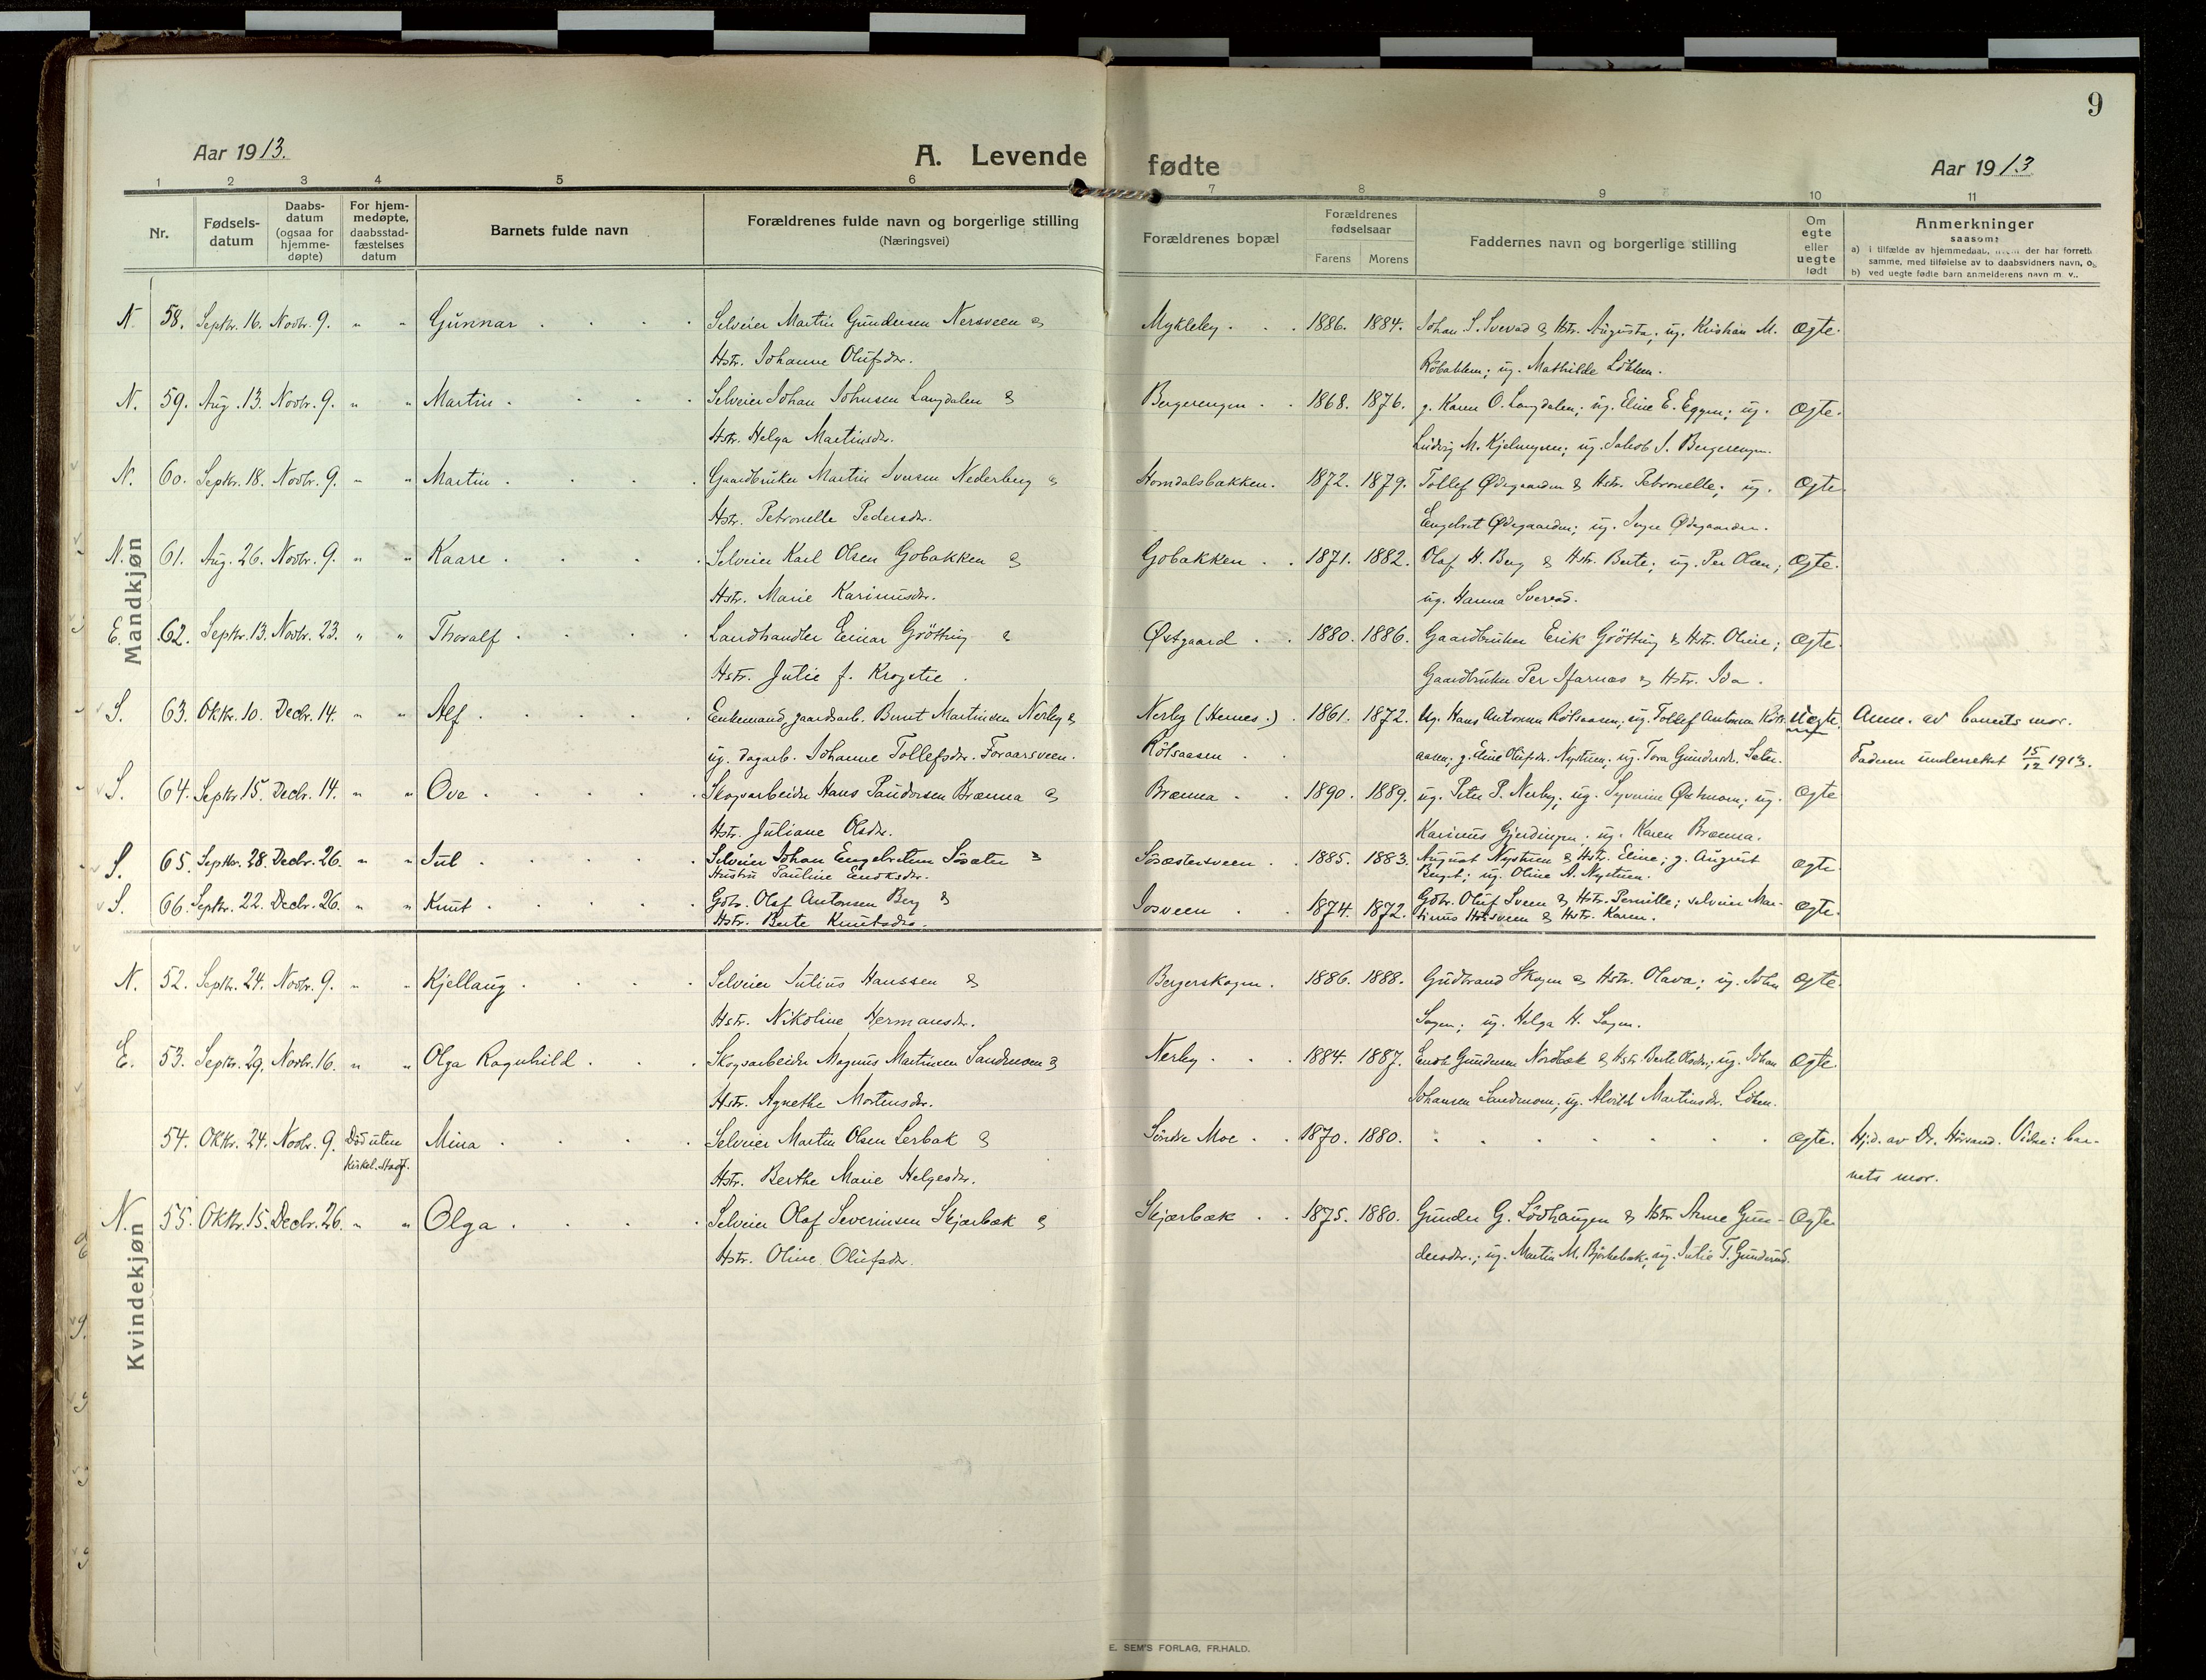 9
Aar 1913.
A. Levende fødte
Aar 1913
1 2 3 4 5 6 7 8 9 10 11
Nr.
Fødsels-datum
Daabs-datum (ogsaa for hjemme-døpte)
For hjem-medøpte, daabsstad-fæstelses datum
Barnets fulde navn
Forældrenes fulde navn og borgerlige stilling (Næringsvei)
Forældrenes bopæl
Forældrenes fødselsaar
Farens Morens
Faddernes navn og borgerlige stilling
Om egte eller uegte født
Anmerkninger
saasom:
a) i tilfælde av hjemmedaab, der har forrett. samme, med tilføielse av to daabsvidners navn, o.
b) ved uegte fødte barn anmelderens navn m. v..
Mandkjøn
N. 58. Septbr. 16. Novbr. 9. " " Gunnar . . . . Selveier Martin Gundersen Nersveen & Mykleby . . . 1886. 1884. Johan S. Svevad & Hstr. Augusta; ug. Kristian M. Ægte.
Hstr. Johanne Olufsdr. ug. Mathilde Løkken.
N. 59. Aug. 13. Novbr. 9. " " Martin . . . . Selveier Johan Johnsen Langdalen & Bergerengen . . 1868. 1876. g. Karen O. Langdalen; ug. Eline E. Eggen; ug. Ægte.
Hstr. Helga Martinsdr. Ludvig M. ug. Jakob J. Bergerengen.
N. 60. Septbr. 18. Novbr. 9. " " Martin . . . . Gaardbruker Martin Iversen Nederberg & Homdalsbakken. 1872. 1879. Tollef Ødegaarden & Hstr. Petronelle; ug. Ægte.
Hstr. Petronelle Pedersdr. Engebret Ødegaarden; ug. Ødegaarden.
N. 61. Aug. 26. Novbr. 9. " " Kaare . . . . Selveier Karl Olsen Gobakken & Gobakken . . 1871. 1882. Olaf H. Berg & Hstr. Berte; ug. Per Olsen; Ægte.
Hstr. Marie Karinusdr. ug. Hanna Svevad.
E. 62. Septbr. 13. Novbr. 23. " " Thoralf . . . . Landhandler Einar Grötting & Østgaard . . 1880. 1886. Gaardbruker Erik Grötting & Hstr. Oline; Ægte.
Hstr. Julie f. Krogstie. Gaardbruker Per Ifarnæs & Hstr. Ida.
S. 63. Oktbr. 10. Decbr. 14. " " Alf . . . . Enkemand, gaardarb. Bernt Martinsen Nerby & Nerby (Hernes.) . 1861. 1872. Ug. Hans Antonsen Rötsaasen; ug. Tollef Antonsen Röts- Uegte. Anm. av barnets mor.
ug. dagarb. Johanne Tollefsdr. Foraarsveen. Rötsaasen . . aasen; g. Eline Olufsdr. Nystuen; ug. Tora Gundersdr. Sæter. Faderen underrettet 15/12 1913.
S. 64. Septbr. 15. Decbr. 14. " " Ove . . . . Skogsarbeider Hans Paudersen Brænna & Brænna . . 1890. 1889. ug. Peter P. Nerby; ug. Syverine Østmoen; ug. Ægte
Hstr. Juliane Olsdr. Karinus Gjerdingen. ug. Karen Brænna.
S. 65. Septbr. 28. Decbr. 26. " " Jul . . . . Selveier Johan Engebretsen & 1885. 1883. August Nystuen & Hstr. Eline; g. August Ægte.
Hustru Pauline Endresdr. Berget; ug. Oline A. Nystuen.
S. 66. Septbr. 22. Decbr. 26. " " Knut . . . . Gbr. Olaf Antonsen Berg & Josveen . . 1874. 1872. Gbr. Oluf Sveen & Hstr. Pernille; selveier Mar- Ægte.
Hstr. Berte Knutsdr. tinus & Hstr. Karen.
Kvindekjøn
N. 52. Septbr. 24. Novbr. 9. " " Kjellaug . . . . Selveier Julius Hanssen & Bergerskogen . 1886. 1888. Gudbrand Skogen & Hstr. Olava; ug. John Ægte.
Hstr. Nikoline Hermansdr. Sagen; ug. Helga H. Sagen.
E. 53. Septbr. 29. Novbr. 16. " " Olga Ragnhild . . Skogsarbeider Magnus Martinsen Sandmoen & Nerby . . . 1884. 1887. Gundersen Nordbæk & Hstr. Berte Olsdr.; ug. Johan Ægte.
Hstr. Agnethe Mortensdr. Johansen Sandmoen; ug. Alvild Martinsdr. Løken.
54. Oktbr. 24. Novbr. 9. Død uten kirkel. stadf. Mina . . . . Selveier Martin Olsen Lerbak & Söndre Moe . . 1870. 1880. . . . . . . Ægte. Hj.d. av Dr. Vidne: bar-
Hstr. Berthe Marie Helgesdr. nets mor.
N. 55. Oktbr. 15. Decbr. 26. " " Olga . . . . Selveier Olaf Severinsen Skjærbæk & Skjærbæk . . 1875. 1880. Gunder G. Lövhaugen & Hstr. Anne Gun- Ægte.
Hstr. Oline Olufsdr. dersdr.; ug. Martin M. Björkebæk; ug. Julie T. Gunderud.
E. SEM'S FORLAG, FR.HALD.